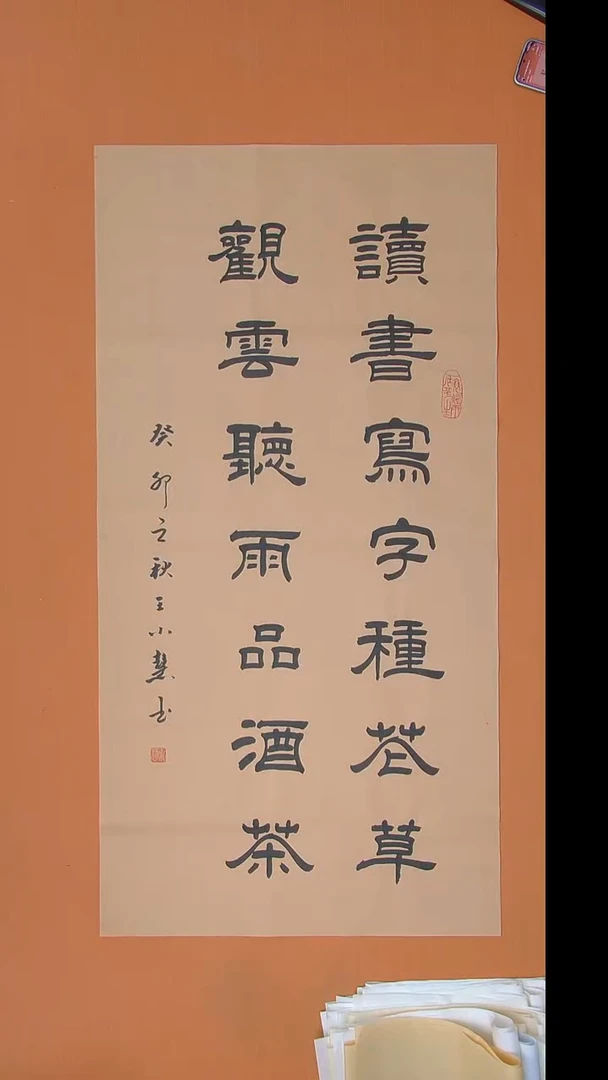 讀書寫字種花草
觀雲聽雨品酒茶
癸卯立秋王小慧书